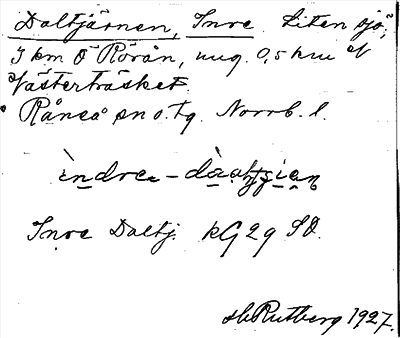 Daltjärnen, Inre Liten sjö,
3 km Ö Rörån, ung. 0,5 km V
Västerträsket.
Råneå sn o. tg. Norrb. l.
Inre Daltj. kG 29 SO.
H. Rutberg 1927.